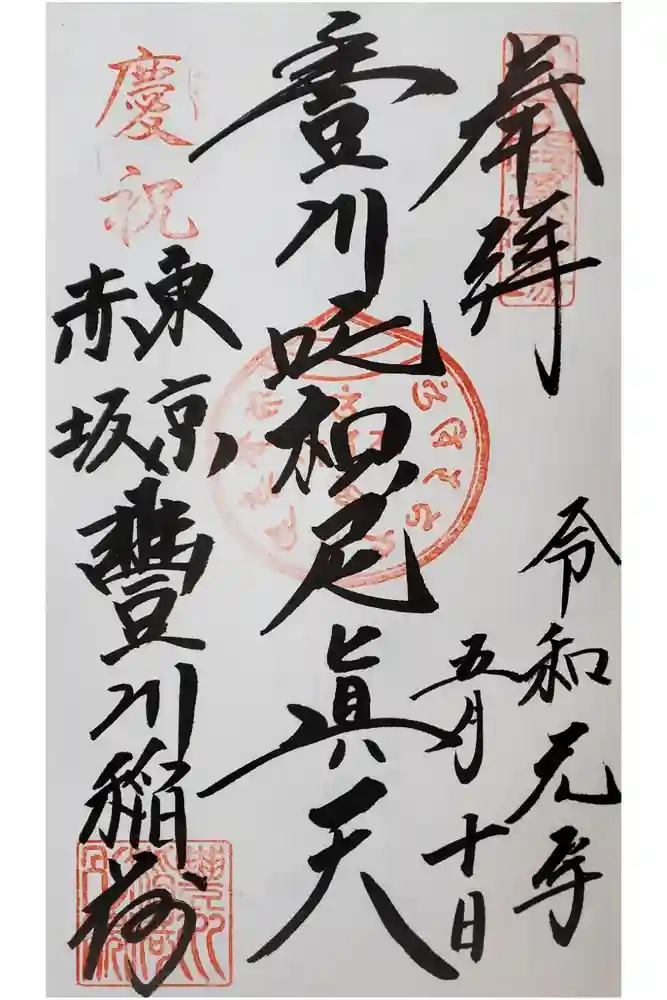 奉拝
令和元年
五月十日
豊川吒枳尼眞天
慶祝
東京
赤坂
豐川稲荷